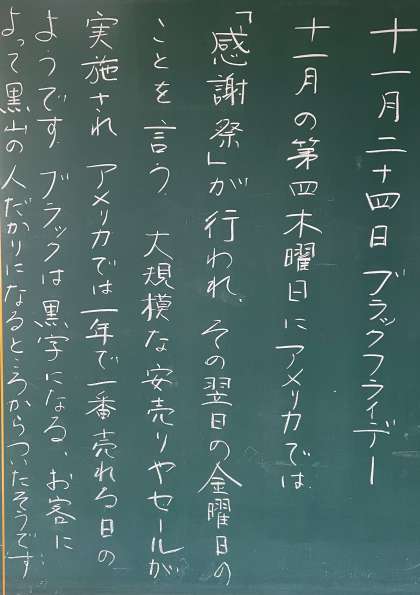 十一月二十四日 ブラックフライデー
十一月の第四木曜日にアメリカでは
「感謝祭」が行われ、その翌日の金曜日の
ことを言う 大規模な安売りやセールが
実施され アメリカでは一年で一番売れる日の
ようです ブラックは黒字になる、お客に
よって黒山の人だかりになるところからついたそうです